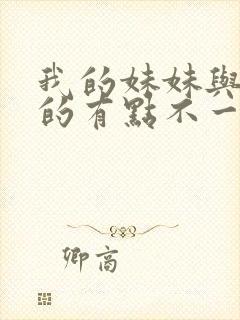 我的妹妹與
的有點不一
卿高